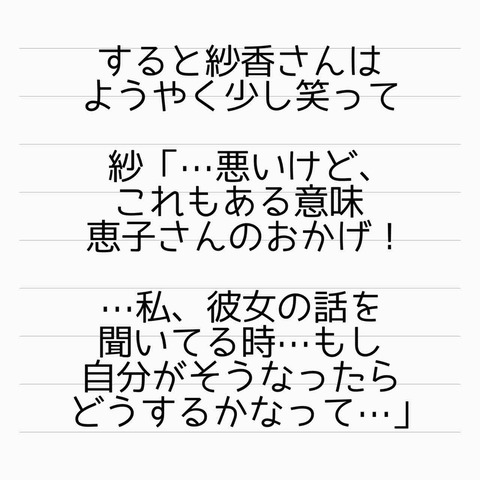 すると紗香さんは
ようやく少し笑って
紗「…悪いけど、
これもある意味
恵子さんのおかげ！
…私、彼女の話を
聞いてる時…もし
自分がそうなったら
どうするかなって…」